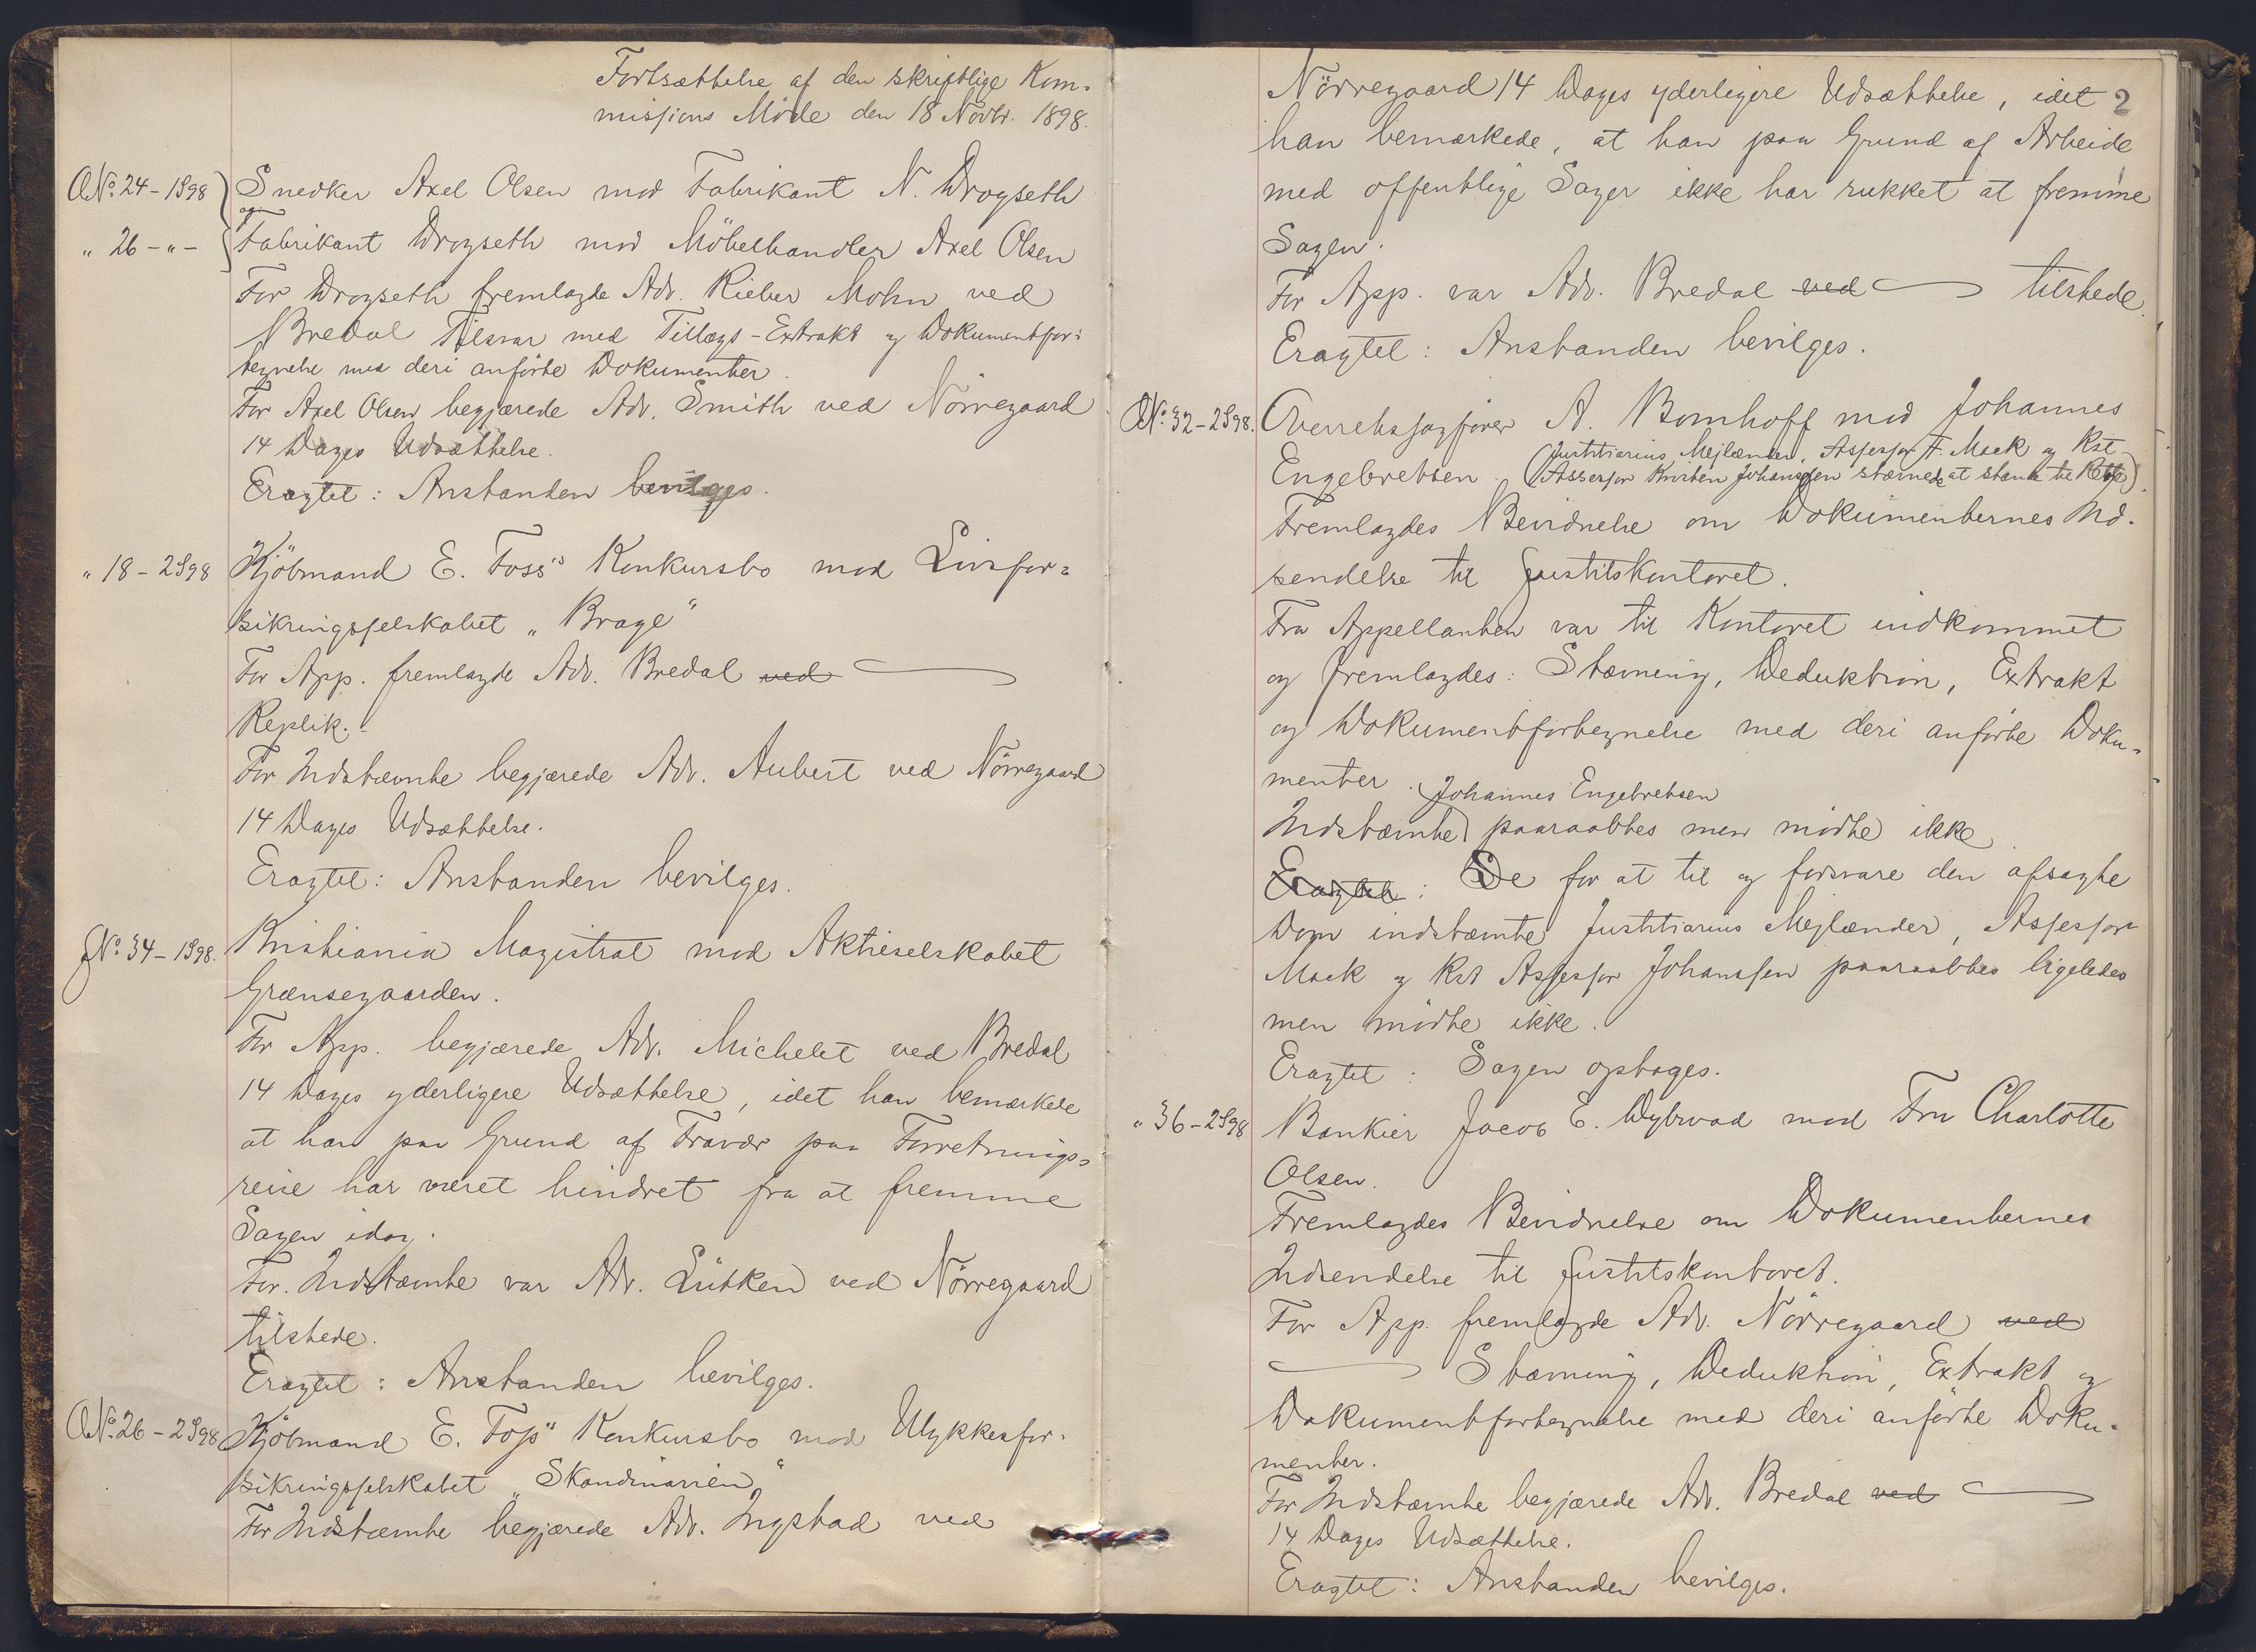 Fortsættelse af den skriftlige Kom-
missions Møde den 18 Novbr. 1898.
O No. 24 - 1S98 Snedker Axel Olsen mod Fabrikant N. Drogseth
og
" 26 - " - Fabrikant Drogseth mod Möbelhandler Axel Olsen
For Drogseth fremlagde Adv. Rieber Mohn ved
Bredal Tilsvar med Tillægs-Extrakt og Dokumentfor-
tegnelse med deri anförte Dokumenter.
For Axel Olsen begjærede Adv. Smith ved Nörregaard
14 Dages Udsættelse.
Eragtet: Anstanden bevilges.
" 18 - 2S98 Kjöbmand E. Foss's Konkursbo mod Livsfor-
sikringsselskabet "Brage"
For App. fremlagde Adv. Bredal ved
Replik.
For Indstæmte begjærede Adv. Aubert ved Nörregaard
14 Dages Udsættelse.
Eragtet: Anstanden bevilges.
No. 34 - 1S98. Kristiania Magistrat mod Aktieselskabet
Grænsegaarden.
For App. begjærede Adv. Michelet ved Bredal
14 Dages yderligere Udsættelse, idet han bemærkede
at han paa Grund af Fravær paa Forretnings-
reise har været hindret fra at fremme
Sagen idag.
For Indstæmte var Adv. Lütken ved Nörregaard
tilstede.
Eragtet: Anstanden bevilges.
O No. 26 - 2S98 Kjöbmand E. Foss' Konkursbo mod Ulykkesfor-
sikringsselskabet "Skandinavien"
For Indstæmte begjærede Adv. Ingstad ved
2
Nörregaard 14 Dages yderligere Udsættelse, idet
han bemærkede, at han paa Grund af Arbeide
med offentlige Sager ikke har rukket at fremme
Sagen.
For App. var Adv. Bredal ved tilstede.
Eragtet: Anstanden bevilges.
O No. 32 - 2S98. Overretssagförer A. Bomhoff mod Johannes
Justitiarius Mejlænder, Assessor F. Mack og Kst
Engebretsen. (Assessor Kristen Johanssen stævnede at stande til Rette).
Fremlagdes Bevidnelse om Dokumenternes Ind-
sendelse til Justitskontoret.
Fra Appellanten var til Kontoret indkommet
og fremlagdes: Stævning, Deduktion, Extrakt
og Dokumentfortegnelse med deri anförte Doku-
menter.
Johannes Engebretsen
Indstæmte paaraabtes men mödte ikke
Eragtet: De for at til og forsvare den afsagte
Dom indstæmte Justitiarius Mejlænder, Assessor
Mack og Kst Assessor Johanssen paaraabtes ligeledes
men mödte ikke.
Eragtet: Sagen optages.
" 36 - 2S98 Bankier Jacob E. Dybwad mod Fru Charlotte
Olsen.
Fremlagdes Bevidnelse om Dokumenternes
Indsendelse til Justitskontoret.
For App. fremlagde Adv. Nörregaard ved
Stævning, Deduktion, Extrakt og
Dokumentfortegnelse med deri anförte Doku-
menter.
For Indstæmte begjærede Adv. Bredal ved
14 Dages Udsættelse.
Eragtet: Anstanden bevilges.